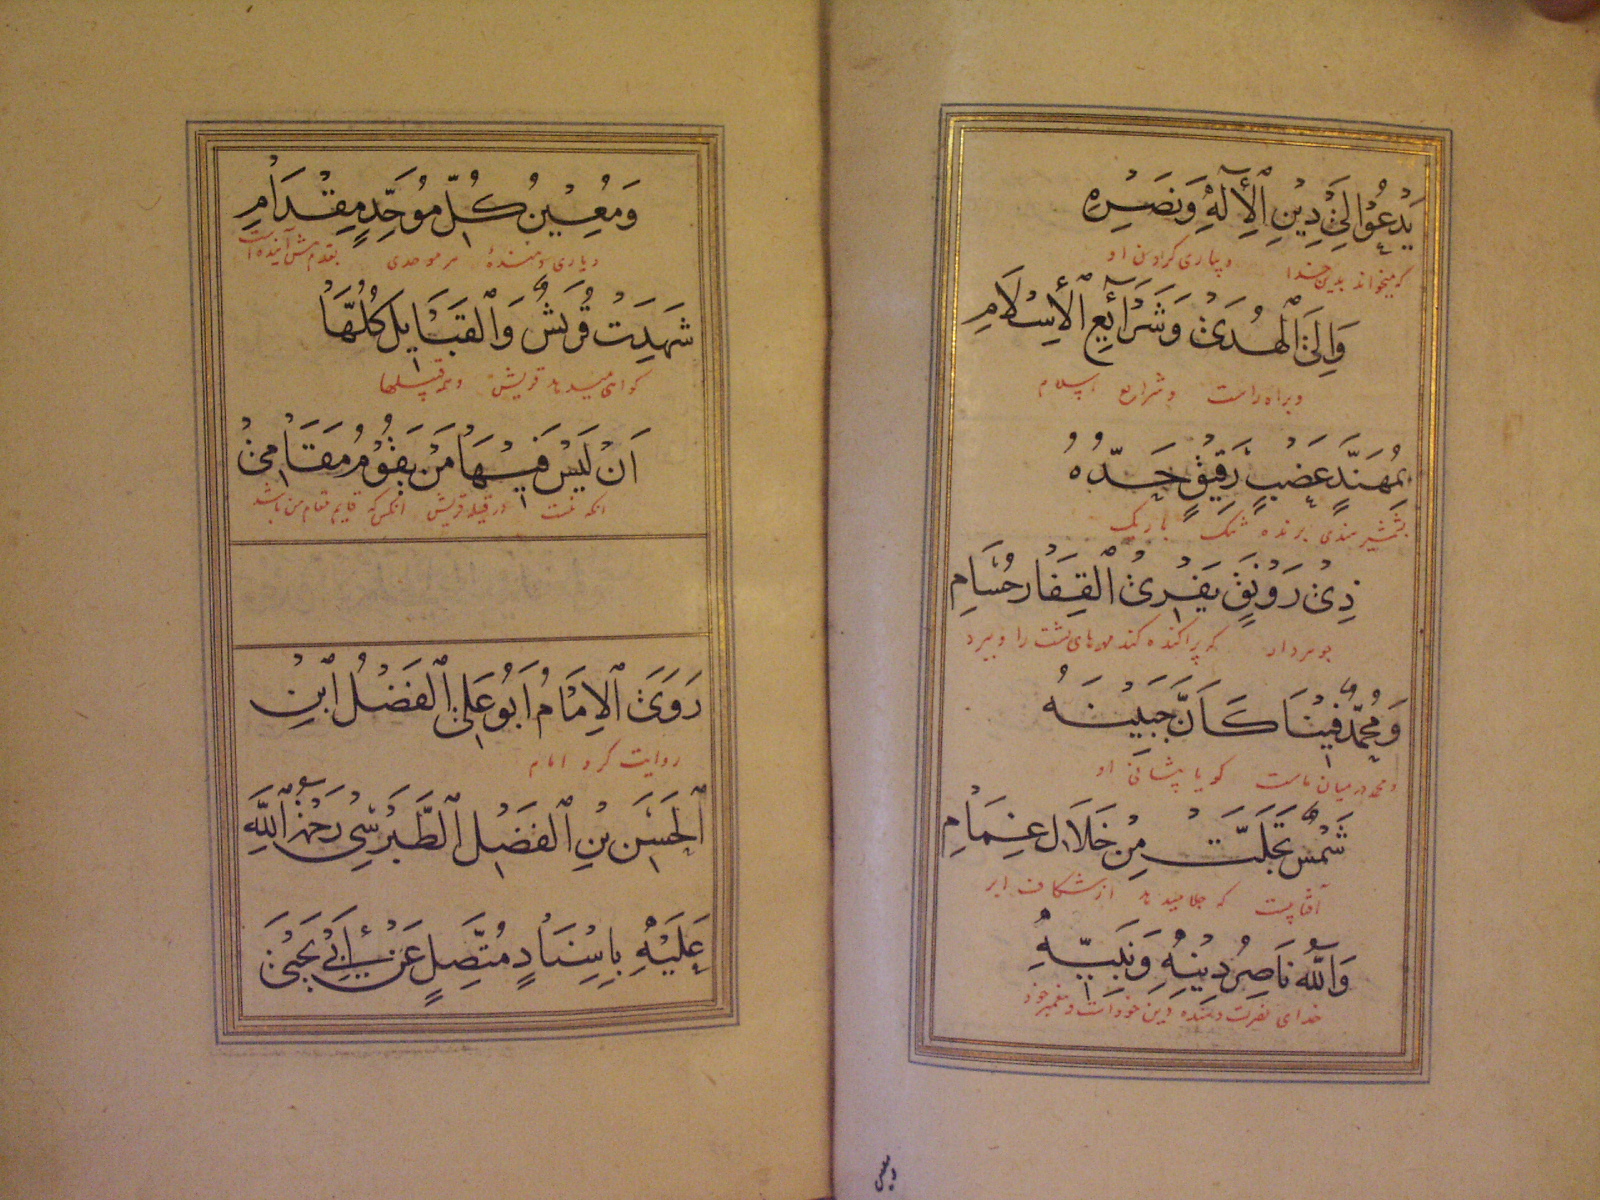 يَدْعُوْا اِلَىٰ دِيْنِ الْاِلٰهِ وَنَصْرِهِ
که میخواند بدین خدا ویاری کردن او
وَاِلَى الْهُدَىٰ وَشَرَآئِعِ الْاِسْلَامِ
وبراه راست وشرایع اسلام
بِمُهَنَّدٍ عَضْبٍ رَقِيْقٍ حَدُّهُ
بشمشیر هندی برنده تنک باریک
ذِىْ رَوْنَقٍ يَفْرِىْ الْقِفَارَ حُسَامِ
جوهردار که پراکنده کند مهرهای پشت را و ببرد
وَمُحَمَّدٌ فِيْنَا كَاَنَّ جَبِيْنَهُ
ومحمد در میان ماست کویا پیشانی او
شَمْسٌ تَجَلَّتْ مِنْ خِلَالِ غَمَامِ
آفتابیست که جلا میدهد از شکاف ابر
وَاللّٰهُ نَاصِرُ دِيْنِهِ وَنَبِيِّهِ
خدای نصرت دهنده دین خود است و پیغمبر خود
وَمُعِيْنُ كُلِّ مُوَحِّدٍ مِقْدَامِ
ویاری دهنده هر موحدی بقدم پیش آینده است
شَهِدَتْ قُرَيْشٌ وَالْقَبَايِلُ كُلُّهَا
کواهی میدهد قریش وهمه قبیلها
اَنْ لَيْسَ فِيْهَا مَنْ يَقُوْمُ مَقَامِىْ
انکه نیست در قبیله قریش انکس که قایم مقام من باشد
رَوَىَ الْاِمَامُ اَبُوْ عَلِىِّ الْفَضْلُ ابْنِ
روایت کرد امام
الْحَسَنِ بْنِ الْفَضْلِ الطَّبَرْسِىِّ رَحْمَةُ اللّٰهِ
عَلَيْهِ بِاِسْنَادٍ مُتَّصِلٍ عَنْ اَبِىْ يَحْيَىٰ